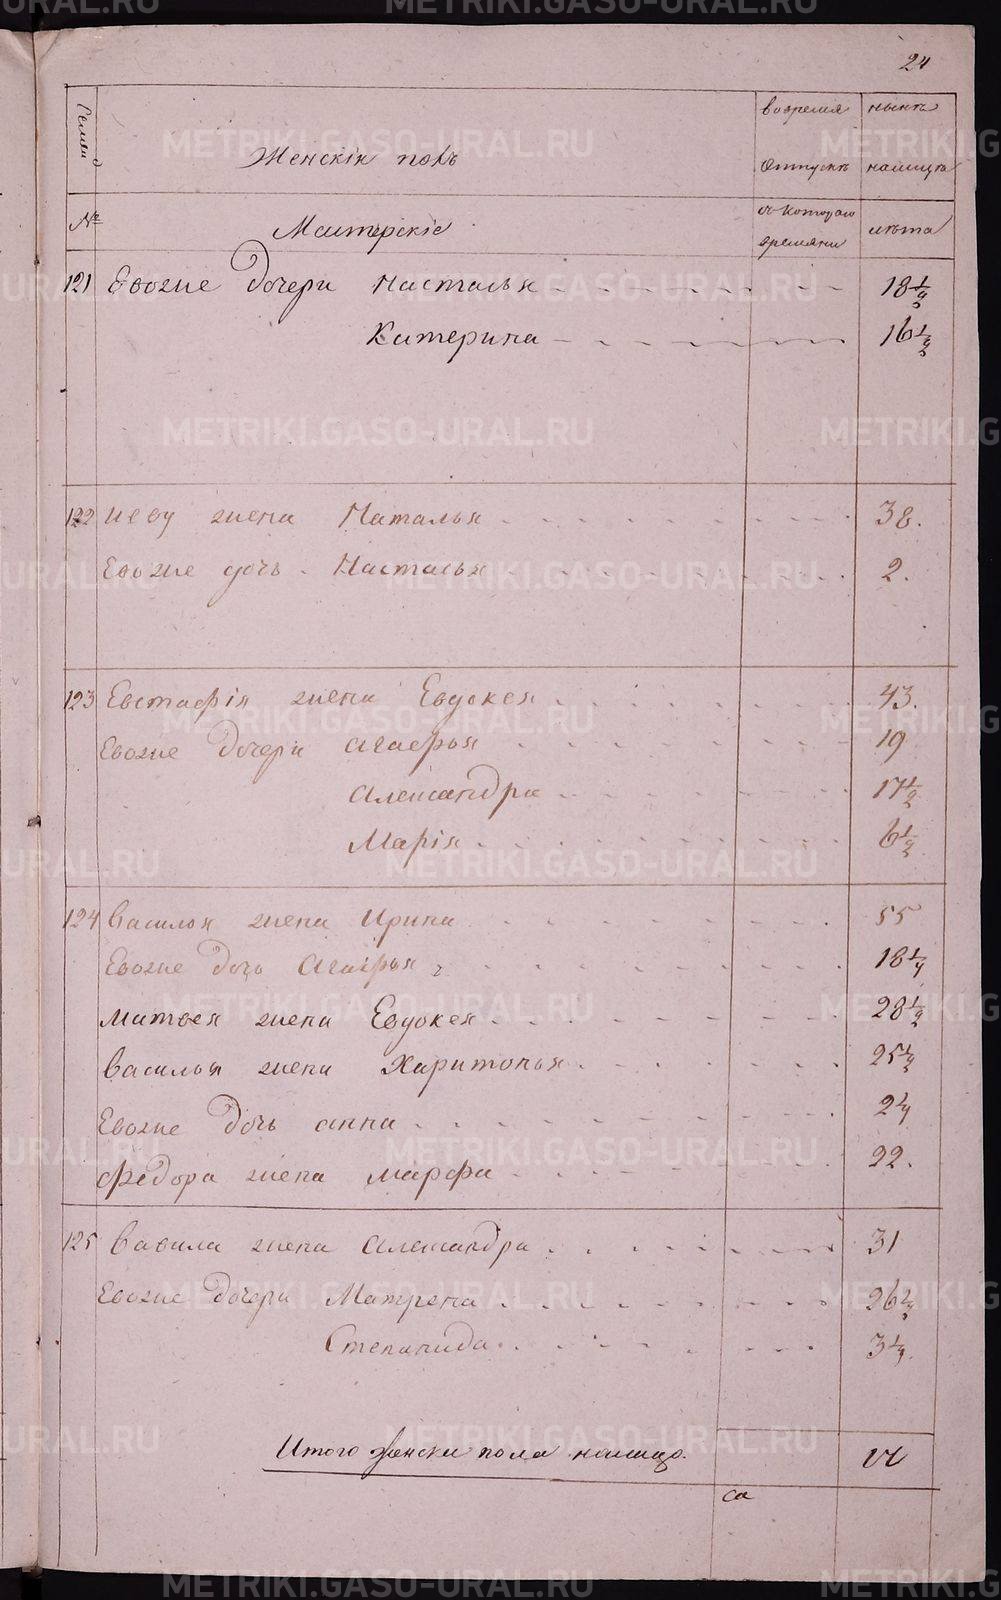 24
Семьи
Женскій полъ
во времѧ
отпускѣ
нынѣ
налицѣ
№
Мастерскіе
съ котораго
времѧни
лѣта
121 Евохие дочери Насталья 18 1/4
Катерина 16 1/2
122 Жена Наталья 38.
Евохие дочь Насталья 2.
123 Евстафія жена Евдокея 43.
Евохие дочери Агаефья 19
Александра 17 1/2
Марія 6 1/2
124 Василья жена Ирина 55
Евохие дочь Агаефья 18 1/4
Матвея жена Евдокея 28 1/2
Василья жена Харитонья 25 1/2
Евохие дочь анна 2 1/4
Федора жена марфа 22.
125 Вавила жена Александра 31
Евохие дочери Матрена
Степанида 3 1/4.
Итого женски пола налицо.
METRIKI.GASO-URAL.RU